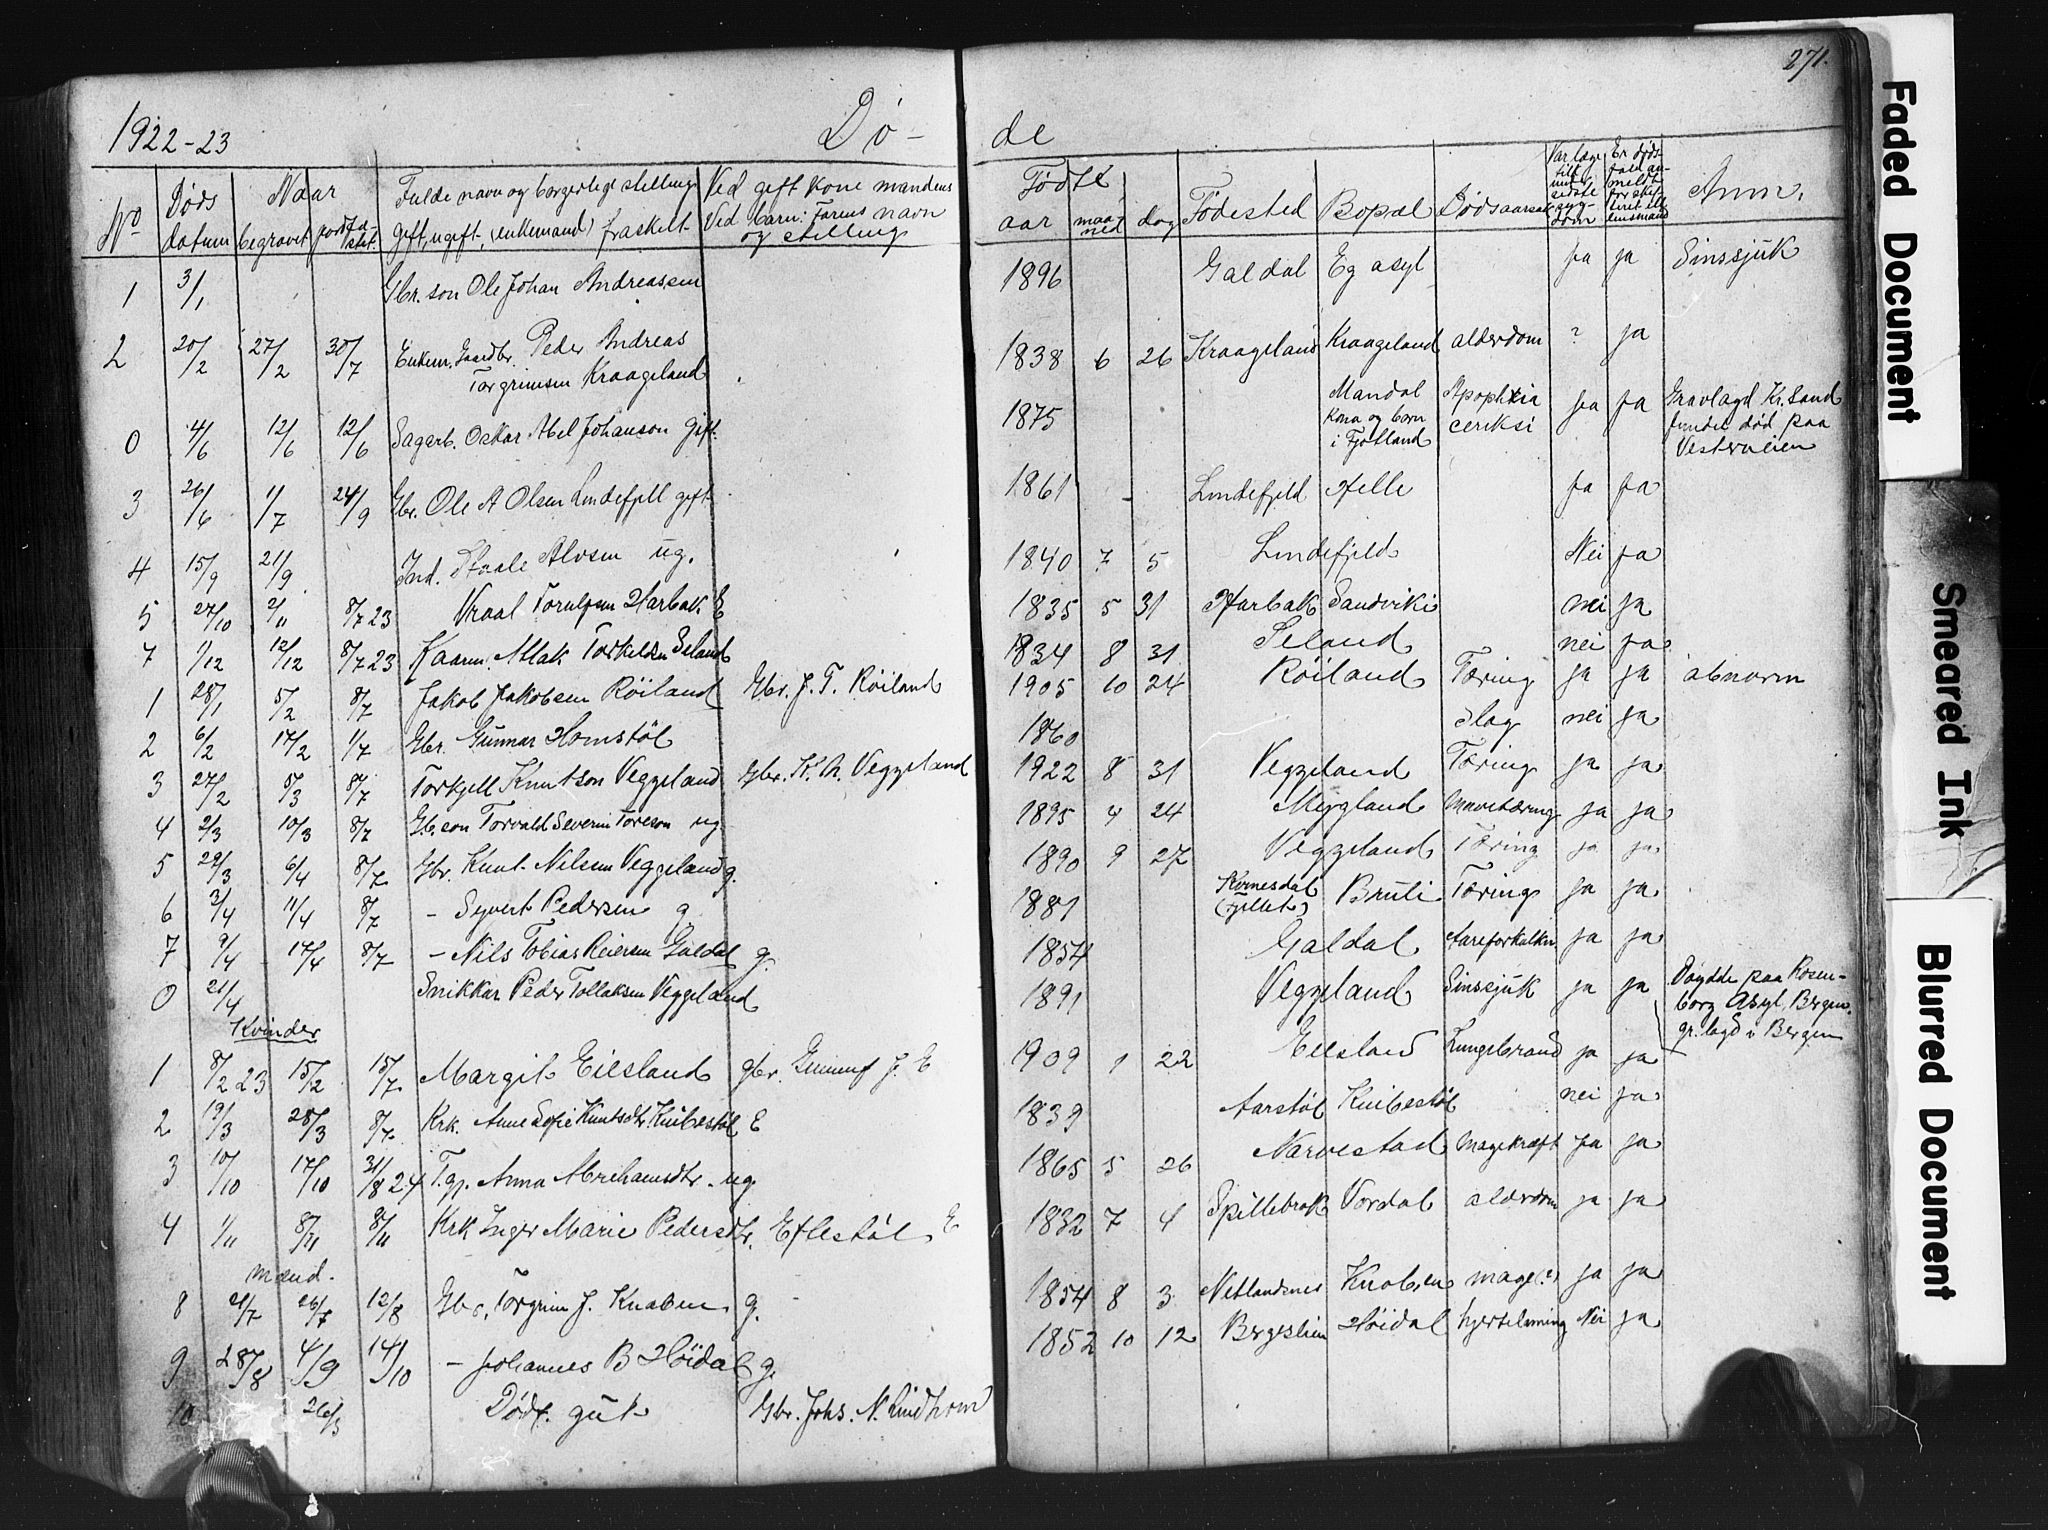 271.
1922-23 Dø- de
No Døds datum Naar begravet jordfæstet Fulde navn og borgerlige stilling Gift, ugift, (enkemand) fraskelt Ved gift kone mandens Ved barn: Farens navn og stilling Født aar maaned dag Fødested Bopæl Dødsaarsak Var læge tilk. under sidste sygdom Er dødsfald anmeldt for skifteret el. lensmand Anm.
1 3/1 Gbr. son Ole Johan Andreassen 1896 Galdal Eg asyl ja ja Sinssjuk
2 20/2 27/2 30/7 Enkem. Gaardbr. Peder Andreas Torgrimsen Kraageland 1838 6 26 Kraageland Kraageland alderdom ? ja
0 4/6 12/6 12/6 Sagarb. Oskar Abel Johanson gift 1875 Mandal kona og born i Fjotland ja ja Gravlagd Kr.sand funden død paa Vesterveien
3 26/6 1/7 24/9 Gbr. Ole A Olsen Lindefjell gift 1861 - Lindefjeld Helle ja ja
4 15/9 21/9 Ind. Staale Alvsen ug. 1840 7 5 Lindefjeld Nei ja
5 27/10 2/11 8/7 23 Vraal Torulfsen Harbak E 1835 5 31 Harbak Sandviki nei ja
7 1/12 12/12 8/7 23 Kaarm. Atlak Torkildsen Seland 1834 8 31 Seland nei ja
1 28/1 5/2 8/7 Jakob Jakobsen Röiland Gbr. J. T. Röiland 1905 10 24 Röiland Tæring ja ja abnorm
2 6/2 17/2 1/7 Gbr. Gunnar Homstøl 1860 Slag nei ja
3 27/2 5/3 8/7 Torkjell Knutson Veggeland Gbr. K. A. Veggeland 1922 8 31 Veggeland Tæring ja ja
4 2/3 10/3 8/7 Gb. son Torvald Severin Toreson ug 1895 4 24 Mygland Mavetæring ja ja
5 29/3 6/4 8/7 Gbr. Knut Nilsen Veggeland g. 1890 9 27 Veggeland Tæring ja ja
6 3/4 11/4 8/7 - Syvert Pedersen g 1881 Kvinesdal Bruli Tæring ja ja
7 9/4 17/4 8/7 - Nils Tobias Reiersen Galdal g. 1854 Galdal Aareforkalkn. ja ja
0 21/4 Snikkar Peder Tollaksen Veggeland 1891 Veggeland Sinssjuk ja ja Døydde paa Rosenborg Asyl, Bergen. gr. lagd i Bergen
Kvinder
1 8/2 23 15/2 15/7 Margit Eilsland gbr. Gunnuf J. E 1909 1 22 Eilsland Lungebrand ja ja
2 19/3 28/3 8/7 Krk. Anne Sofie Knutsdtr. Knibestøl E 1839 Aarstøl Knibestøl nei ja
3 10/10 17/10 31/8 24 T.gj. Anna Abrehamsdtr. ug 1865 5 26 Narvestad Magekræft ja ja
4 1/11 8/11 8/11 Krk Inger Marie Pedersdtr. Eftestøl E 1832 7 4 Spillebrok Vordal alderdom ja ja
Mænd.
8 21/7 26/7 12/8 Gbr. Torgrim J. Knaben g. 1854 8 3 Netlandsnes Knaben mage (?) ja ja
9 28/8 4/9 14/10 - Johannes B Höidal g. 1852 10 12 Bergeslien Höidal hjertelamning Nei ja
10 26/3 Dödf. gut Gbr. Johs. N. Lindhom
Faded Document
Smeared Ink
Blurred Document